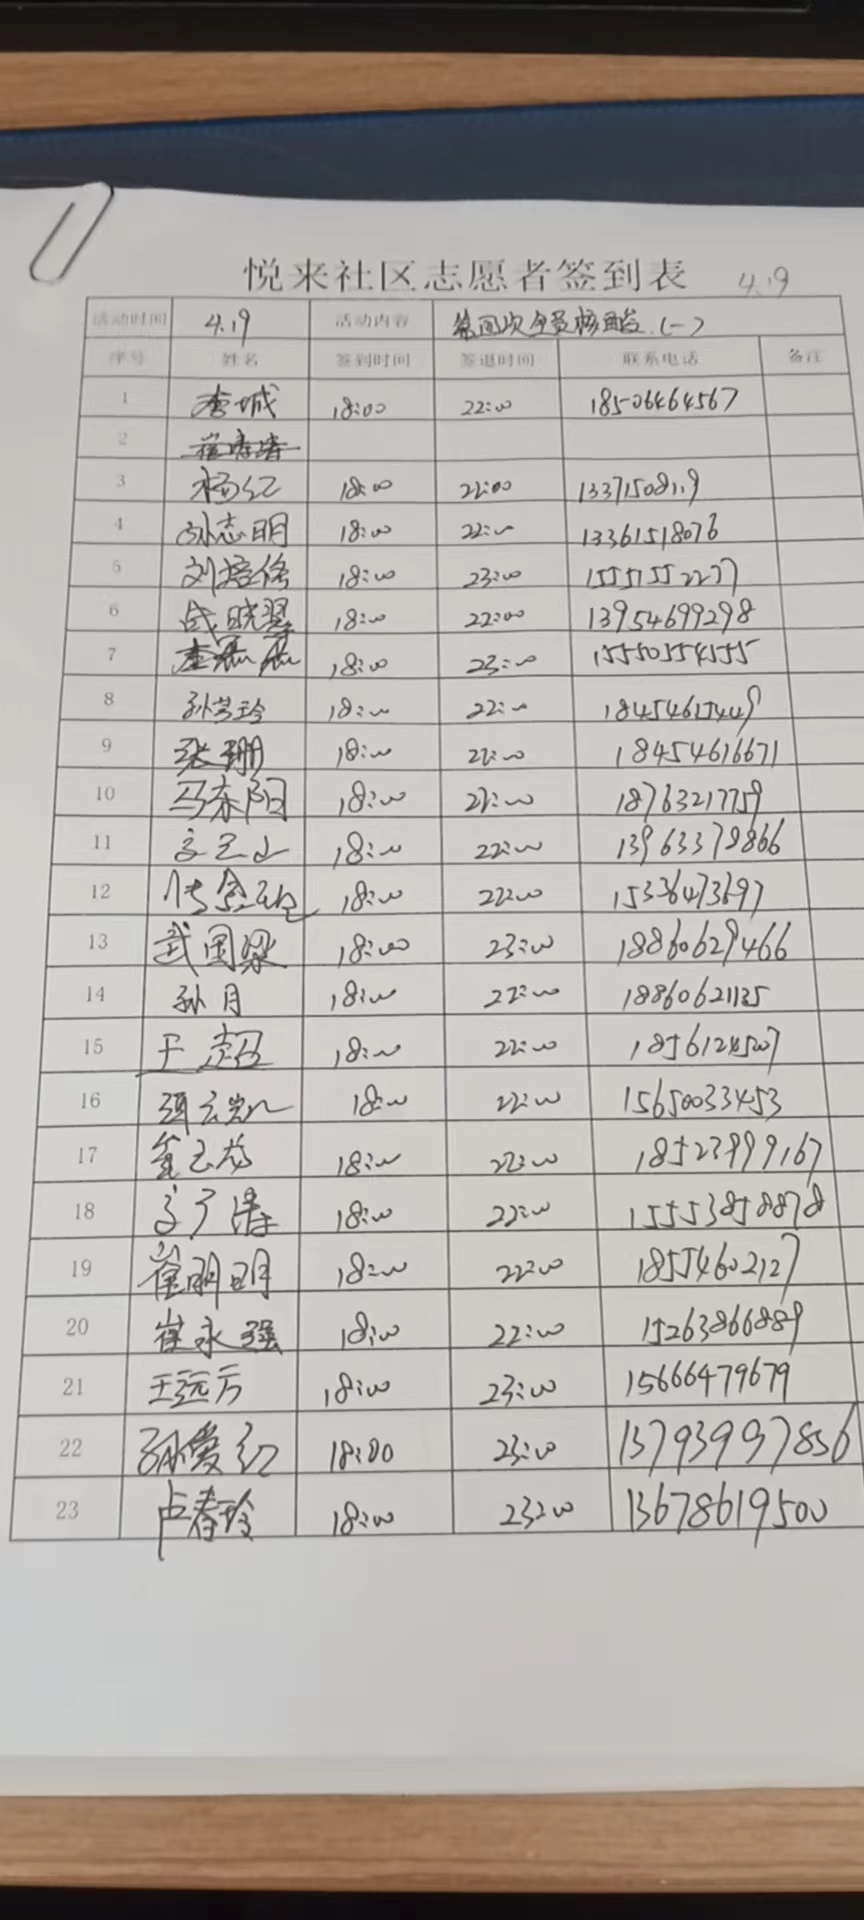 悦来社区志愿者签到表 4.19
活动时间 4.19 活动内容 第四次全员核酸（一）
序号 姓名 签到时间 签退时间 联系电话 备注
1 李城 18:00 22:00 18506464567
2
3 杨红 18:00 22:00
4 孙志明 18:00 22:00 13361518076
5 刘培俊 18:00 23:00 15551552277
6 成晓翠 18:00 22:00 13954699298
7 18:00 23:00 15550554555
8 孙芳玲 18:00 22:00 18454615449
9 张珊 18:00 22:00 18454616671
10 马东阳 18:00 22:00 18763217759
11 18:00 22:00 13963379866
12 18:00 22:00 15336473697
13 武国梁 18:00 23:00 18860629466
14 孙月 18:00 22:00 18860621135
15 王超 18:00 22:00
16 18:00 22:00 15650033453
17 18:00 22:00 18523999167
18 18:00 22:00 15553858878
19 崔明明 18:00 22:00 18554602127
20 崔永强 18:00 22:00 15263866889
21 王远方 18:00 23:00 15666479679
22 孙爱红 18:00 23:00 13793997856
23 卢春玲 18:00 23:00 13678619500